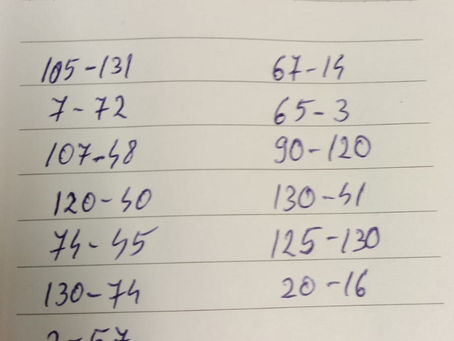 105-131 67-14
7-72 65-3
107-48 90-120
120-40 130-41
74-45 125-130
130-74 20-16